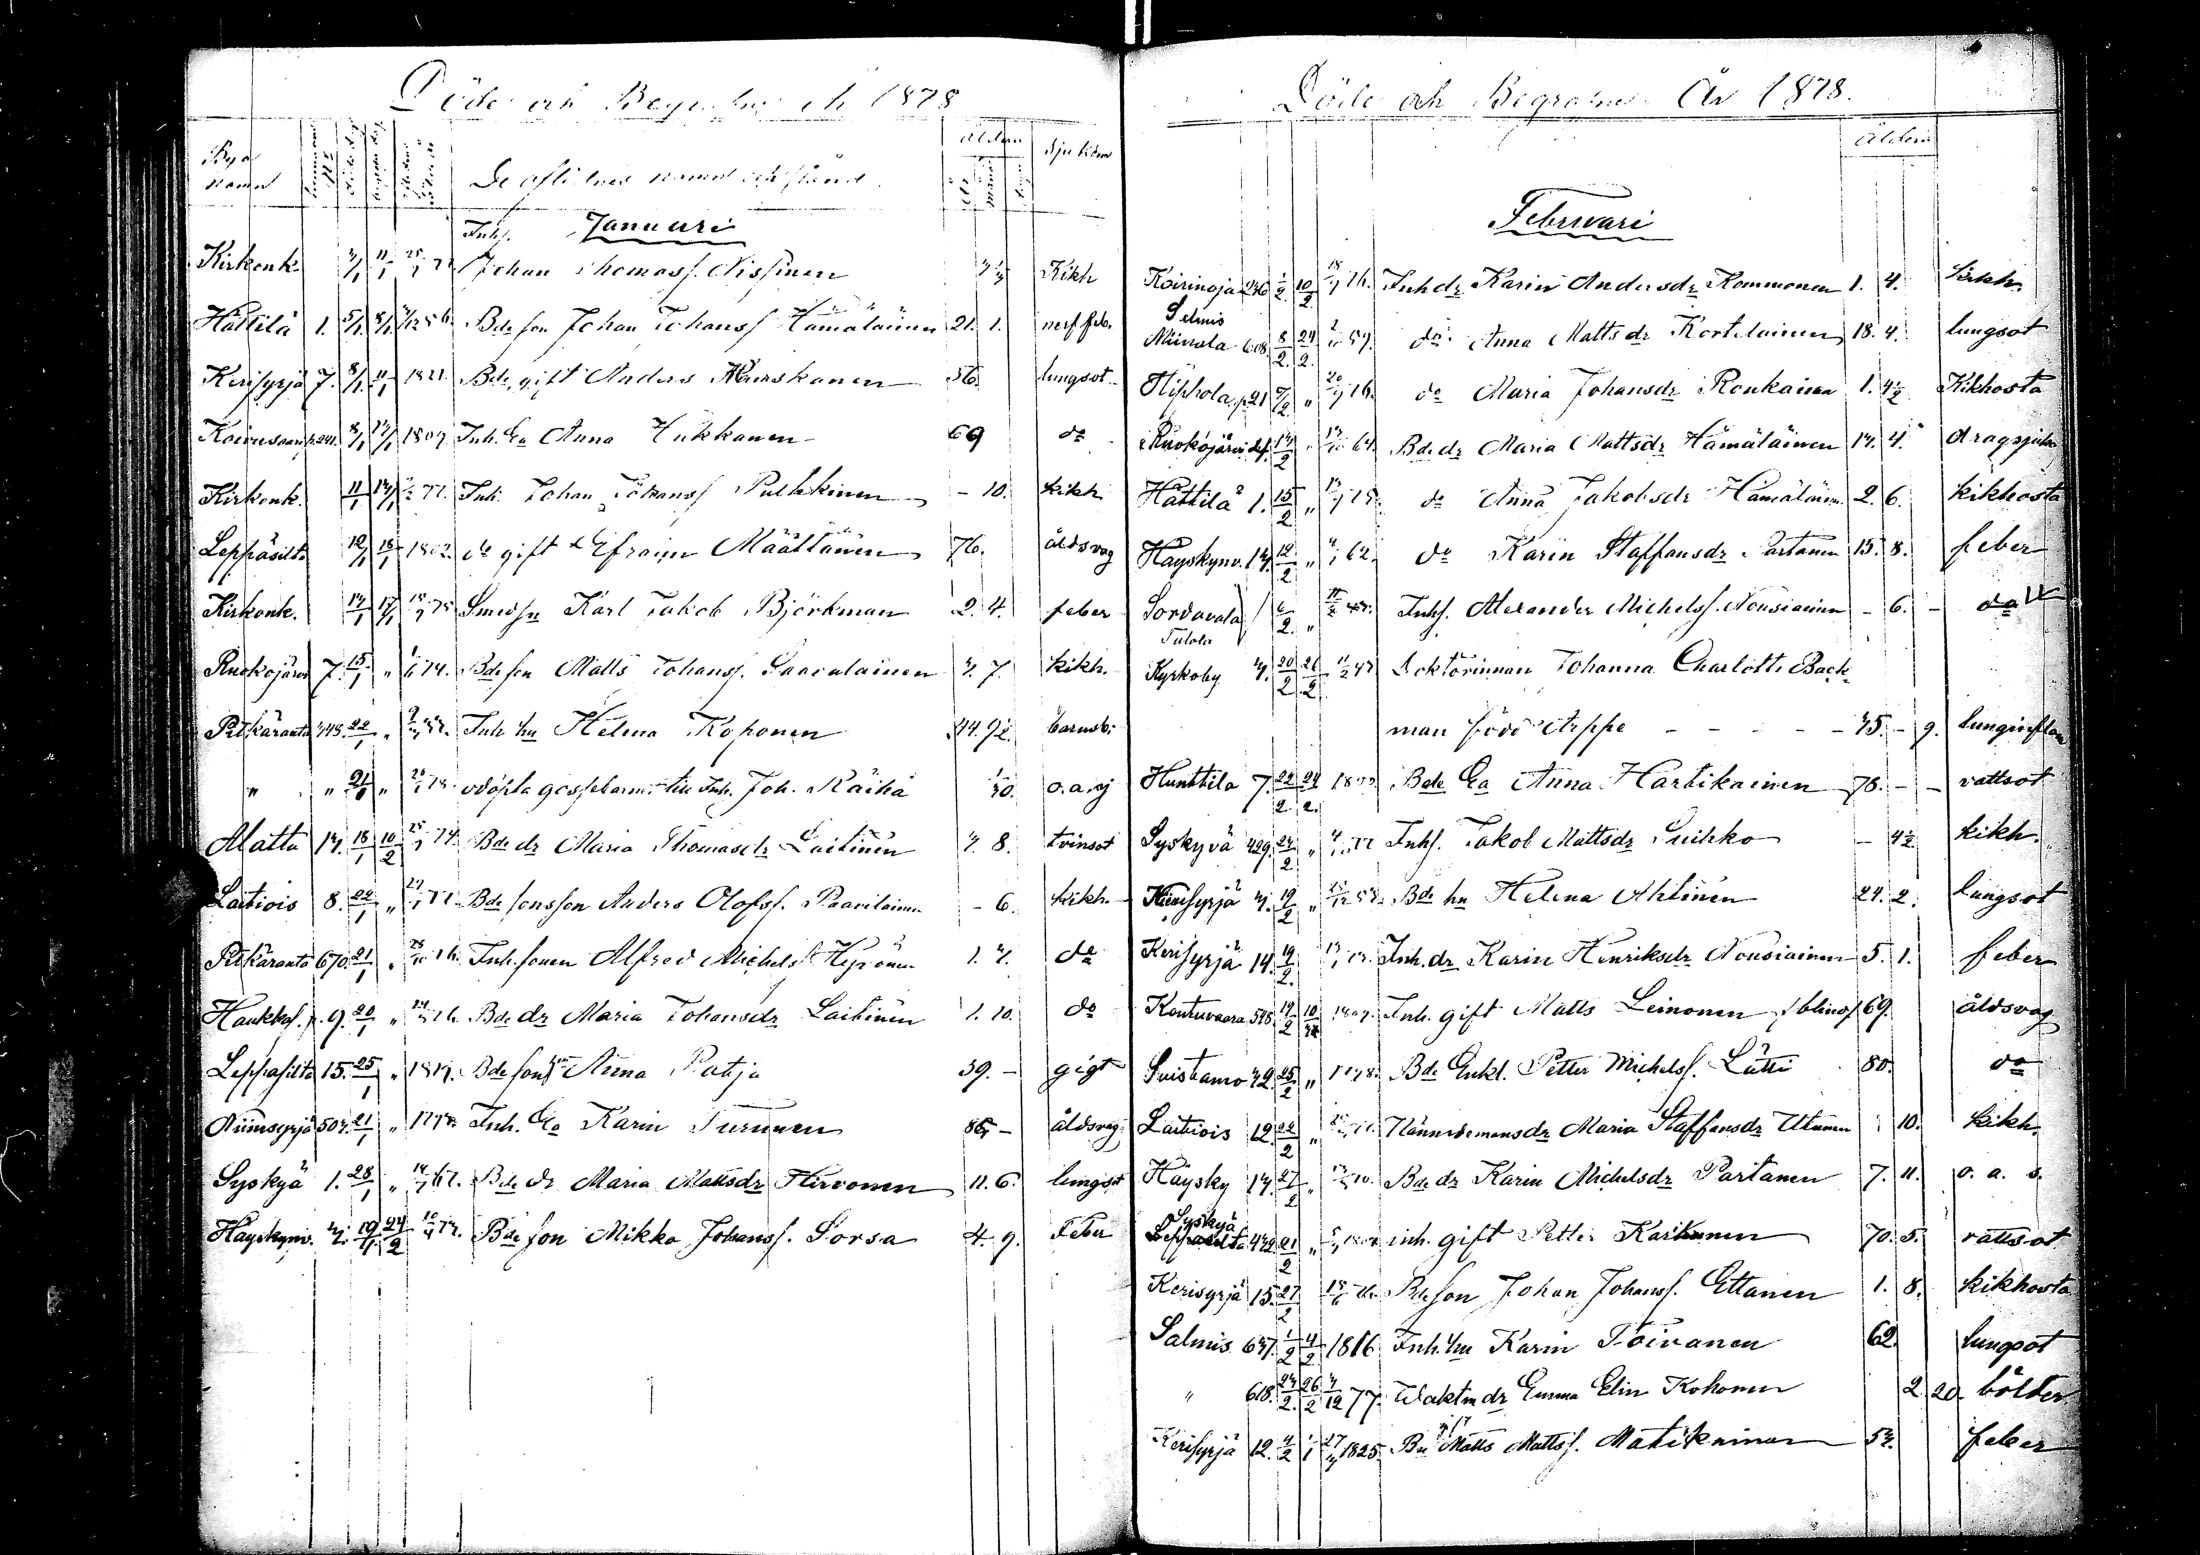 Döde och Begrafne År 1878
Byn namn
De aflidnes namn och stånd
Åldern
Sjukdom
Januari
Kirkonk. Inhs. Johan Thomass. Nissinen Kikh
Hättilä 1. 5/1 8/1 56. Bde son Johan Johanss Hämäläinen 21. 1. nerf feb.
Kerisyrjä 7. 8/1 11/1 1821. Bde gift Anders Kurskanen 56. lungsot
Koivusaari 8/1 13/1 1809 Inh. Ea Anna Hukkanen 69 do
Kirkonk. 11/1 13/1 77. Inh. Johan Johanss Pulkkinen - 10. kikh
Leppäsilta 12/1 1802. do gift Efraim Määttänen 76. åldsvag
Kirkonk. 17/1 75 Smedsn Karl Jakob Björkman 2. 4. feber
Ruokojärvi 7. 15/1 " 74. Bde son Matts Johanss. Saaralainen 3. 7. kikh.
Pitkäranta 748. 22/1 " Inh hu Helena Koponen 44. barnsb.
" " 21/1 " 78. odöpta gossebarnet till Inh. Joh. Räihä o.a.sj
Alatta 13. 18/1 10/2 74. Bde dr Maria Thomasdr Laitinen 3. 8. tvinsot
Laitiois 8. 22/1 " 77. Bde sonsson Anders Olofss. Paavilainen - 6. kikh.
Pitkäranta 670. 21/1 " 76. Inh. sonen Alfred Michelss Hyvönen 1. 3. do
Haukkas. 9. 20/1 " 76. Bde dr Maria Johansdr Laitinen 1. 10. do
Leppäsilta 15. 25/1 " 1819. Bde Anna Patja 59. - gigt
Niinisyrjä 503. 21/1 " Inh. Ea Karin Turunen 85 - åldsvag
Syskyä 1. 28/1 " 14/7 67. Bde dr Maria Mattsdr Hirvonen 11. 6. lungsot
Häyskynv. 3. 19/1 24/2 73. Bde son Mikko Johanss. Sorsa 4. 9. Feber
Döde och Begrafne År 1878.
Åldern
Februari
Koirinoja 246 1/2 10/2 76. Inh dr Karin Andersdr Kommonen 1. 4. kikh.
Selmis
Miinala 608 8/2 24/2 59. do Anna Mattsdr Kortelainen 18. 4. lungsot
Hiphola p.21 7/2 " 20/9 76. do Maria Johansdr Ronkainen 1. 4½ Kikhosta
Ruokojärvi 13/2 " 64. Bde dr Maria Mattsdr Hämäläinen 13. 4. dragsjuka
Hättilä 1. 15/2 " 75. do Anna Jakobsdr Hämäläinen 2. 6. kikhosta
Häyskynv. 13. 12/2 " 62. do Karin Staffansdr Partanen 15. 8. feber
Sordavala 6/2 " Inhs. Alexander Michelss. Nousiainen - 6. - do
Tulola
Kyrkoby 3. 20/2 21/2 Doktorinnan Johanna Charlotte Back-
man född Arppe - - - - - 75. - 9. lunginflam
Hunttila 7. 22/2 24/2 Bde Ea Anna Hartikainen 78. - - vattsot
Syskyvä 429. 24/2 " 77 Inhs. Jakob Mattsdr Suihko - 4½ kikh.
Kerisyrjä 3. 19/2 " Bde hu Helena Ahtinen 24. 2. lungsot
Kerisyrjä 14. 19/2 Inh. dr Karin Henriksdr Nousiainen 5. 1. feber
Kontuvaara 548 19/2 1809. Inh. gift Matts Leinonen / blind / 69. åldsvag
Suistamo 42. 25/2 " 1798. Bde Enkl. Petter Michelss. Lätti 80. do
Laitiois 12. 22/2 " Nämndemansdr Maria Staffansdr Uttunen 10. kikh.
Häysky 13. 27/2 " 70. Bde dr Karin Michelsdr Partanen 7. 11. o. a. s.
Syskyä
Leppäsilta 432 21/2 " inh. gift Petter Karhunen 70. 5. vattsot
Kerisyrjä 15. 27/2 76. Bde son Johan Johanss. Ettanen 1. 8. kikhosta
Salmis 637. 1/2 4/2 1816 Inh. hu Karin Toivanen 62. lungsot
" 618. 23/2 26/2 3/12 77. Waktm dr Emma Elin Kohonen 2 20. bölder
Kerisyrjä 12. 4/2 1825. Bde Matts Mattss. Matikainen 53. feber